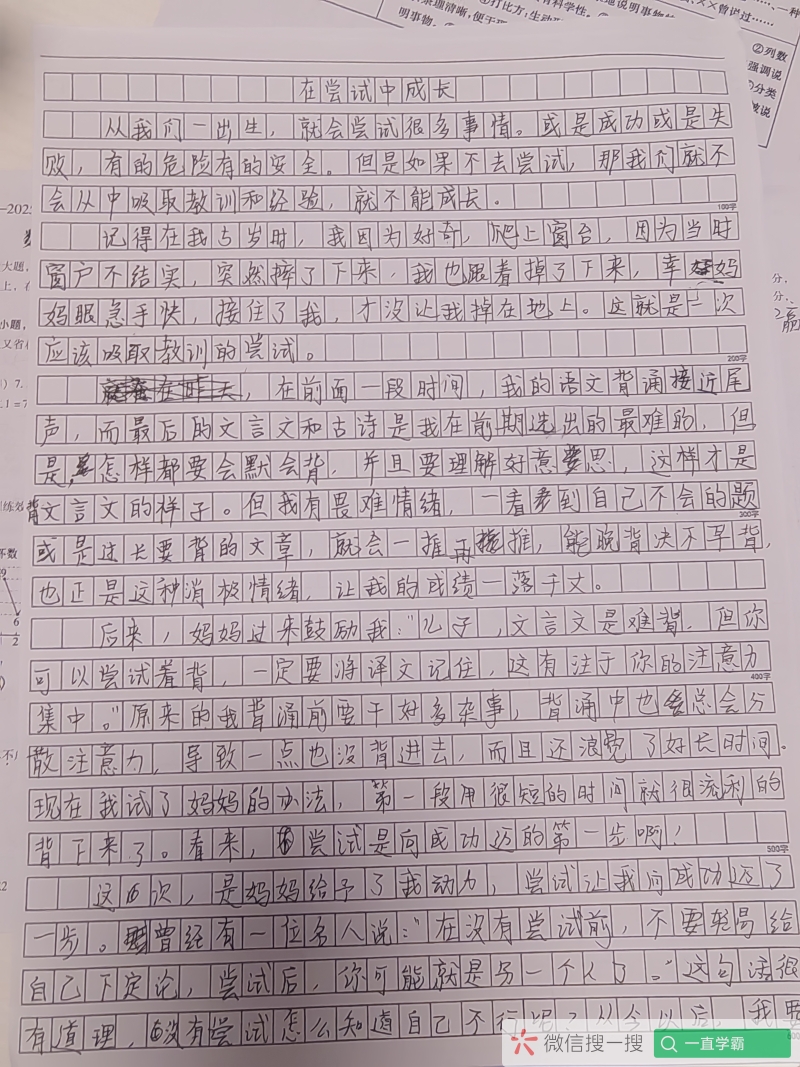 有科学性。
地说明事物的
一种
××曾说过……
条理清晰,便于理
②打比方:生动形
明事物。
②列数
强调说
分类
在尝试中成长
从我们一出生,就会尝试很多事情。或是成功或是失
败,有的危险有的安全。但是如果不去尝试,那我们就不
会从中吸取教训和经验,就不能成长。
100字
记得在我5岁时,我因为好奇,爬上窗台,因为当时
窗户不结实,突然摔了下来,我也跟着掉了下来,幸妈
妈眼急手快,接住了我,才没让我掉在地上。这就是一次
应该吸取教训的尝试。
200字
在前面一段时间,我的语文背诵接近尾
声,而最后的文言文和古诗是我在前期选出的最难的,但
是,怎样都要会默会背,并且要理解好意思,这样才是
背文言文的样子。但我有畏难情绪,一看到自己不会的题
300字
或是过长要背的文章,就会一推再推,能晚背决不早背,
也正是这种消极情绪,让我的成绩一落千丈。
后来,妈妈过来鼓励我:“儿子,文言文是难背,但你
可以尝试着背,一定要将译文记住,这有注于你的注意力
400字
集中。”原来的我背诵前要干好多杂事,背诵中也总会分
散注意力,导致一点也没背进去,而且还浪费了好长时间。
现在我试了妈妈的办法,第一段用很短的时间就很流利的
背下来了。看来,尝试是向成功迈的第一步啊!
500字
这次,是妈妈给予了我动力,尝试让我向成功迈了
一步。曾经有一位名人说:“在没有尝试前,不要轻易给
自己下定论,尝试后,你可能就是另一个人了。”这句话很
有道理,没有尝试怎么知道自己不行呢?从今以后,我要
微信搜一搜
一直学霸